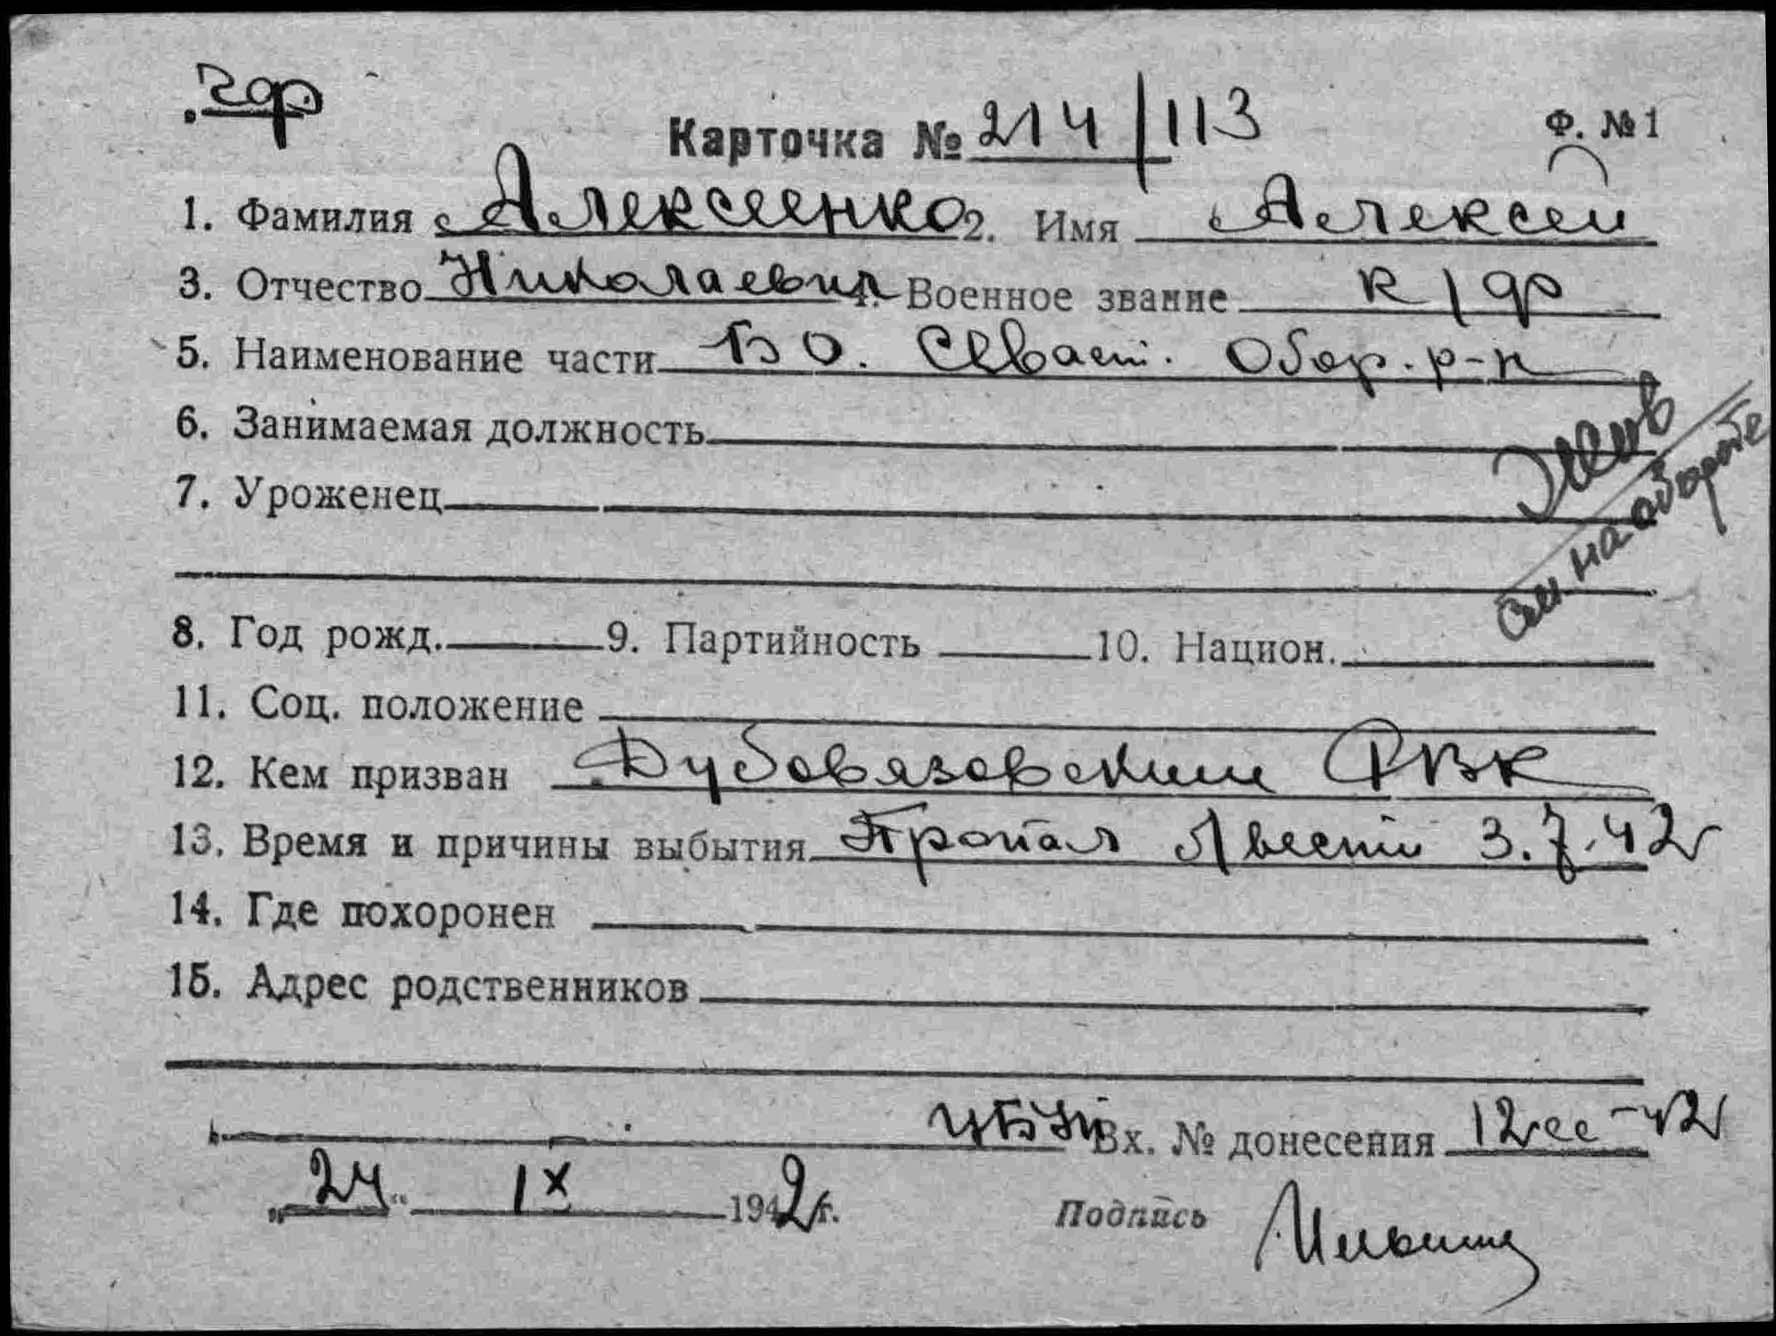 чф
Карточка № 214/113 Ф. № 1
1. Фамилия Алексеенко 2. Имя Алексей
3. Отчество Николаевич 4. Военное звание к/ф
5. Наименование части БО. Севаст. Обор. р-н
6. Занимаемая должность
7. Уроженец
Жив
см на обороте
8. Год рожд. 9. Партийность 10. Национ.
11. Соц. положение
12. Кем призван Дубовязовским РВК
13. Время и причины выбытия Пропал б/вести 3.7.42
14. Где похоронен
15. Адрес родственников
Вх. № донесения 12сс-42
„24“ IX 1942 г. Подпись